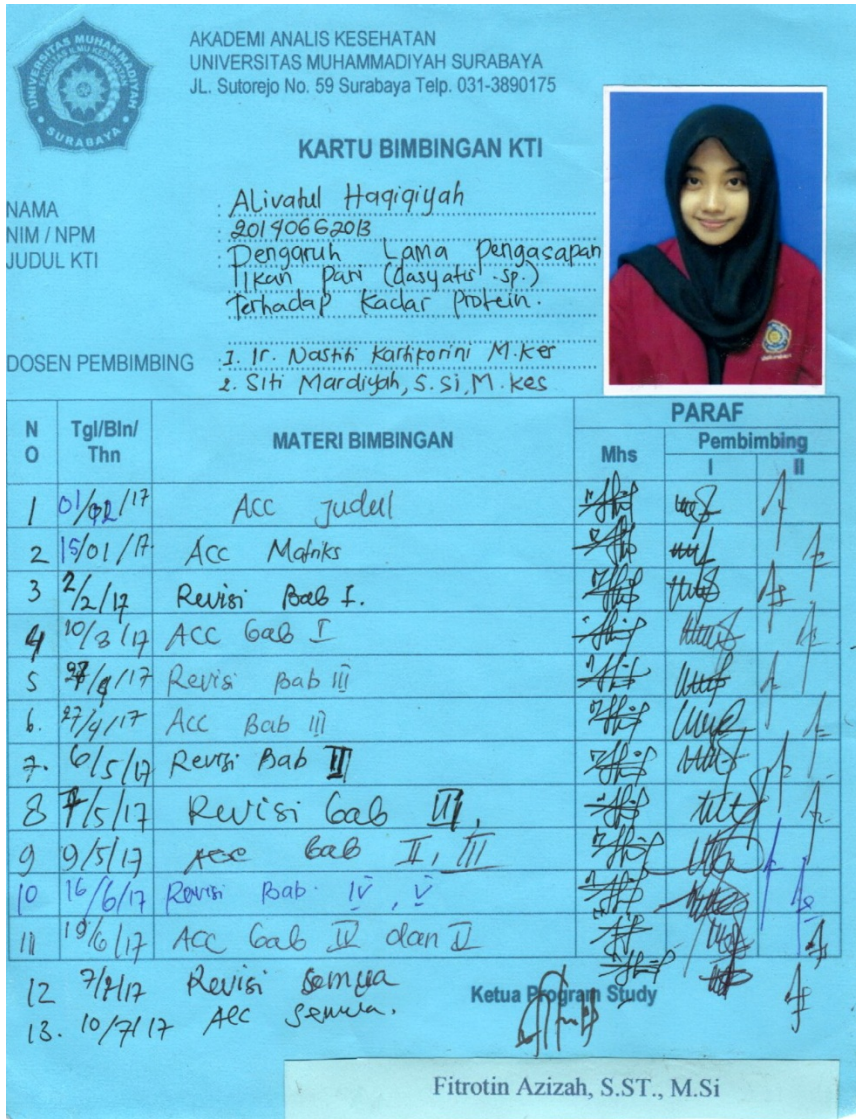 UNIVERSITAS MUHAMMADIYAH
FAKULTAS ILMU KESEHATAN
SURABAYA
AKADEMI ANALIS KESEHATAN
UNIVERSITAS MUHAMMADIYAH SURABAYA
JL. Sutorejo No. 59 Surabaya Telp. 031-3890175
KARTU BIMBINGAN KTI
NAMA : ALivatul Haqiqiyah
NIM / NPM : 20140662013
JUDUL KTI : Pengaruh Lama Pengasapan
Ikan Pari (dasyatis sp.)
Terhadap Kadar Protein.
DOSEN PEMBIMBING : 1. Ir. Nastiti Kartikorini M.Kes
2. Siti Mardiyah, S.Si, M.kes
NO Tgl/Bln/Thn MATERI BIMBINGAN PARAF
Mhs Pembimbing
I II
1 01/ /17 ACC Judul
2 15/01/17 Acc Matriks
3 2/2/17 Revisi Bab I.
4 10/3/17 ACC bab I
5 /17 Revisi Bab III
6. 27/4/17 Acc Bab III
7. 6/5/17 Revisi Bab II
8 7/5/17 Revisi bab III,
9 9/5/17 Acc bab II, III
10 16/6/17 Revisi Bab. IV, V
11 19/6/17 ACC bab IV dan V
12 7/7/17 Revisi Semua
13. 10/7/17 Acc Semua.
Ketua Program Study
Fitrotin Azizah, S.ST., M.Si